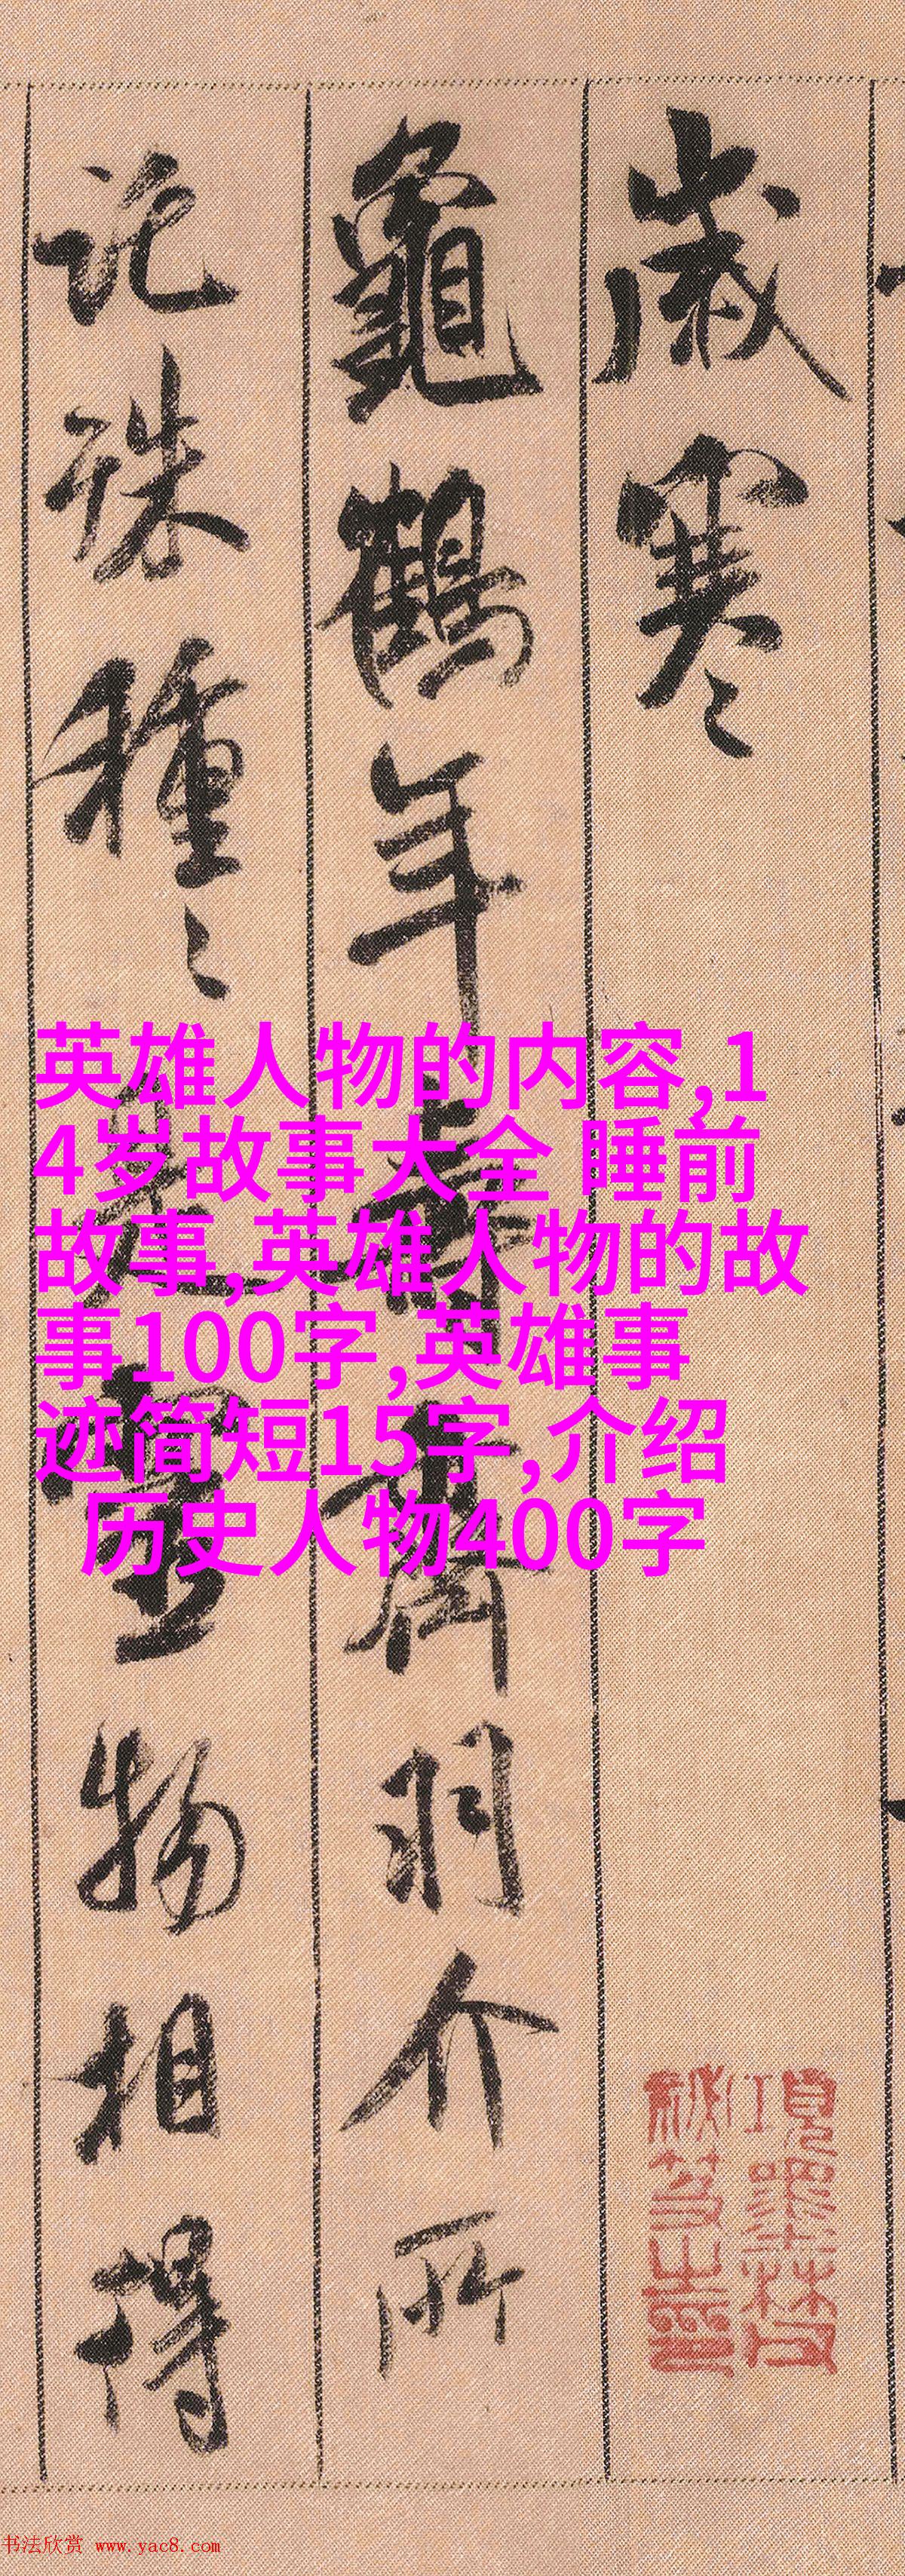 歲
寒
龜鶴年壽齊羽介所
託殊種種是靈物相得
英雄人物的内容,1
4岁故事大全 睡前
故事,英雄人物的故
事100字,英雄事
迹简短15字,介绍
历史人物400字
书法欣赏 www.yac8.com